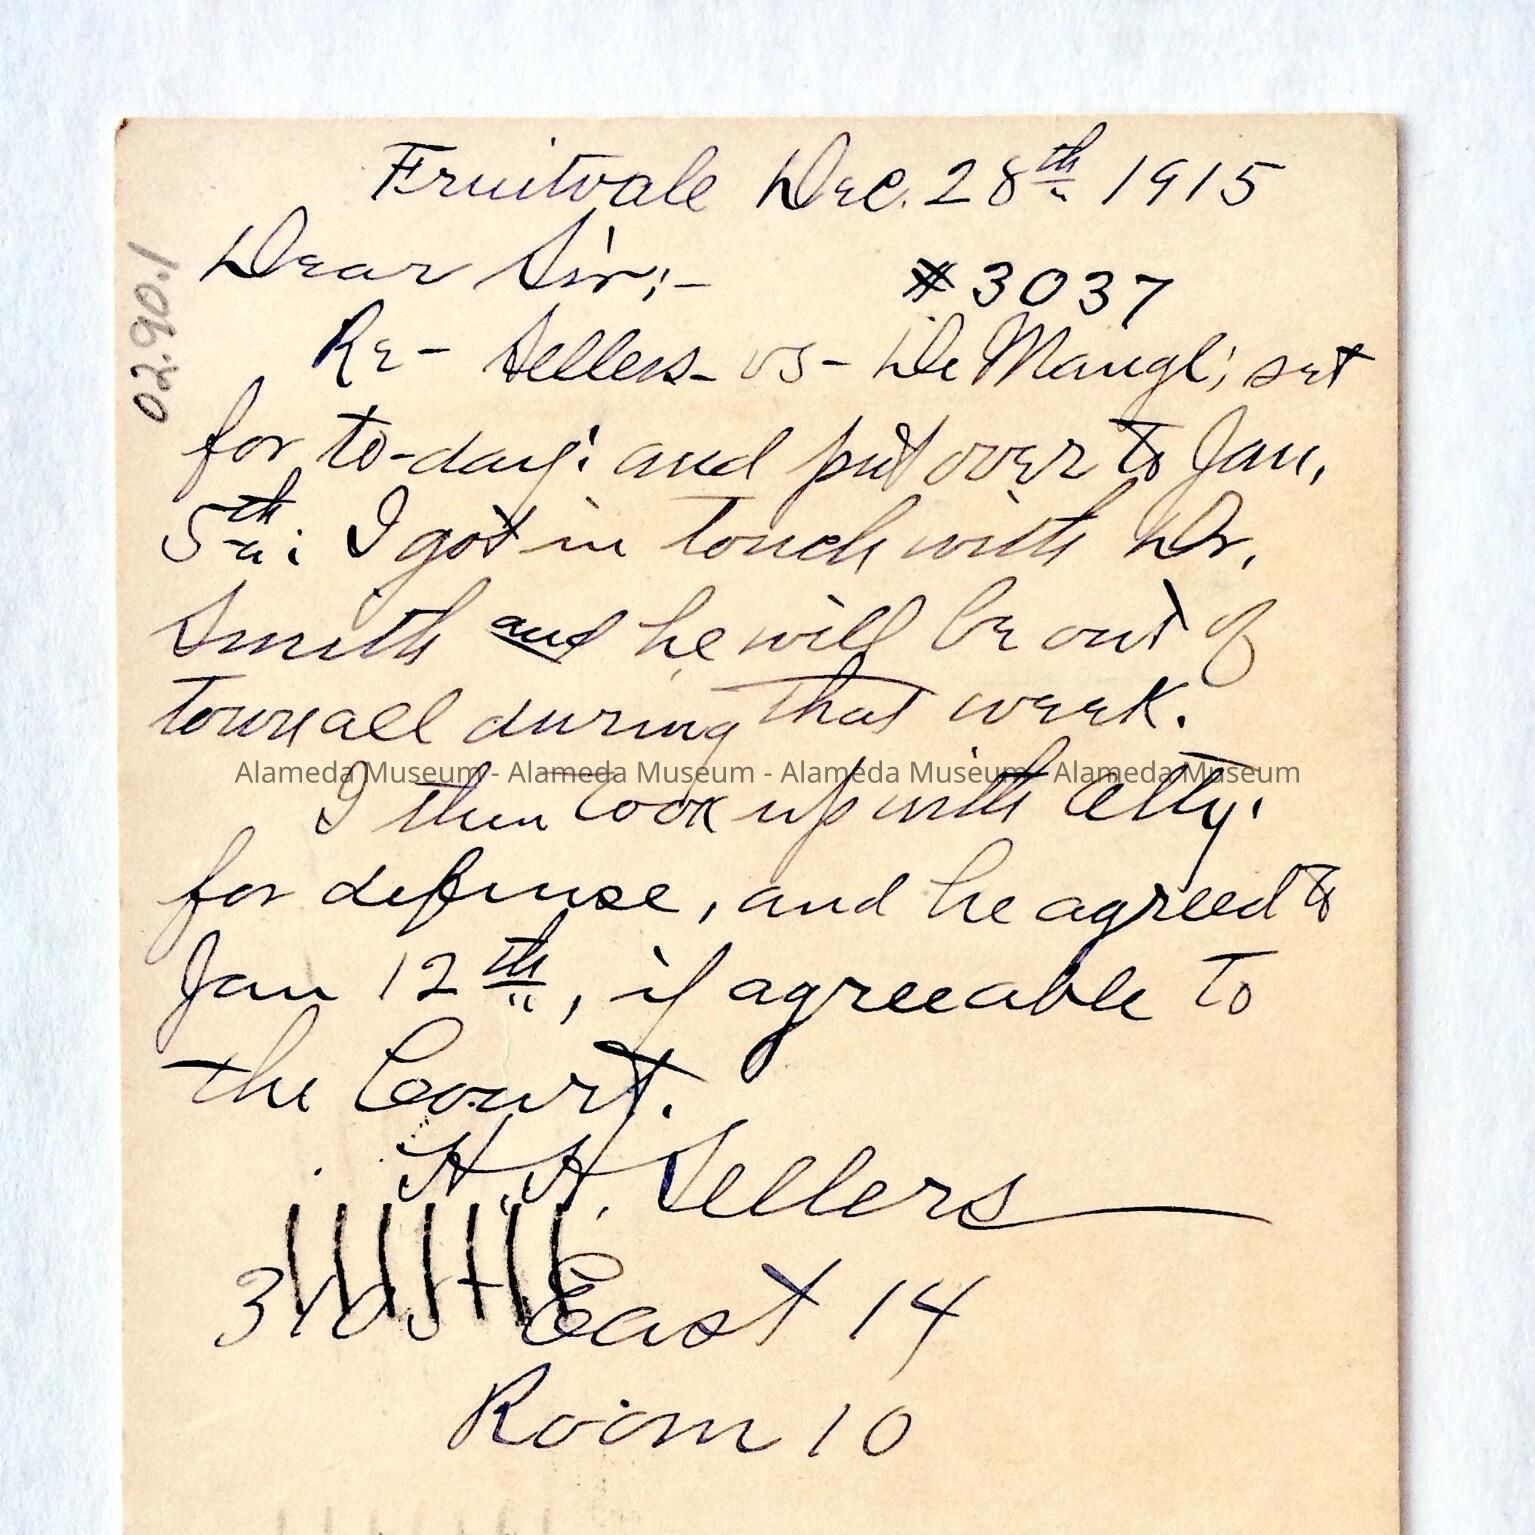 Fruitvale Dec. 28th 1915
Dear Sir;-
#3037
Re- Sellers- vs- De Mangl; set
for to-day; and put over to Jan,
5th; I got in touch with Dr,
Smith and he will be out of
town all during that week.
Alameda Museum - Alameda Museum - Alameda Museum - Alameda Museum
I then took up with Atty.
for defense, and he agreed to
Jan 12th, if agreeable to
the Court.
H. H. Sellers
East 14
Room 10
02.90.1